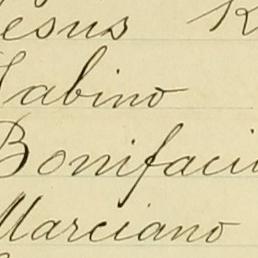 esus R
Sabino
Bonifaci
Marciano